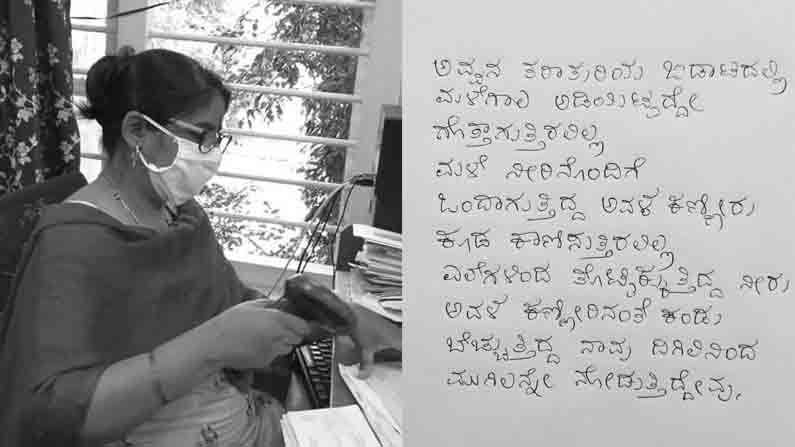 ಅಮ್ಮನ ತರಾತುರಿಯ ಓಡಾಟದಲ್ಲಿ
ಮಳೆಗಾಲ ಅಡಿಯಿಟ್ಟದ್ದೇ
ಗೊತ್ತಾಗುತ್ತಿರಲಿಲ್ಲ
ಮಳೆ ನೀರಿನೊಂದಿಗೆ
ಒಂದಾಗುತ್ತಿದ್ದ ಅವಳ ಕಣ್ಣೀರು
ಕೂಡ ಕಾಣಿಸುತ್ತಿರಲಿಲ್ಲ
ಎಲೆಗಳಿಂದ ತೊಟ್ಟಿಕ್ಕುತ್ತಿದ್ದ ನೀರು
ಅವಳ ಕಣ್ಣೀರಿನಂತೆ ಕಂಡು
ಬೆಚ್ಚುತ್ತಿದ್ದ ನಾವು ದಿಗಿಲಿನಿಂದ
ಮುಗಿಲನ್ನೇ ನೋಡುತ್ತಿದ್ದೇವು.